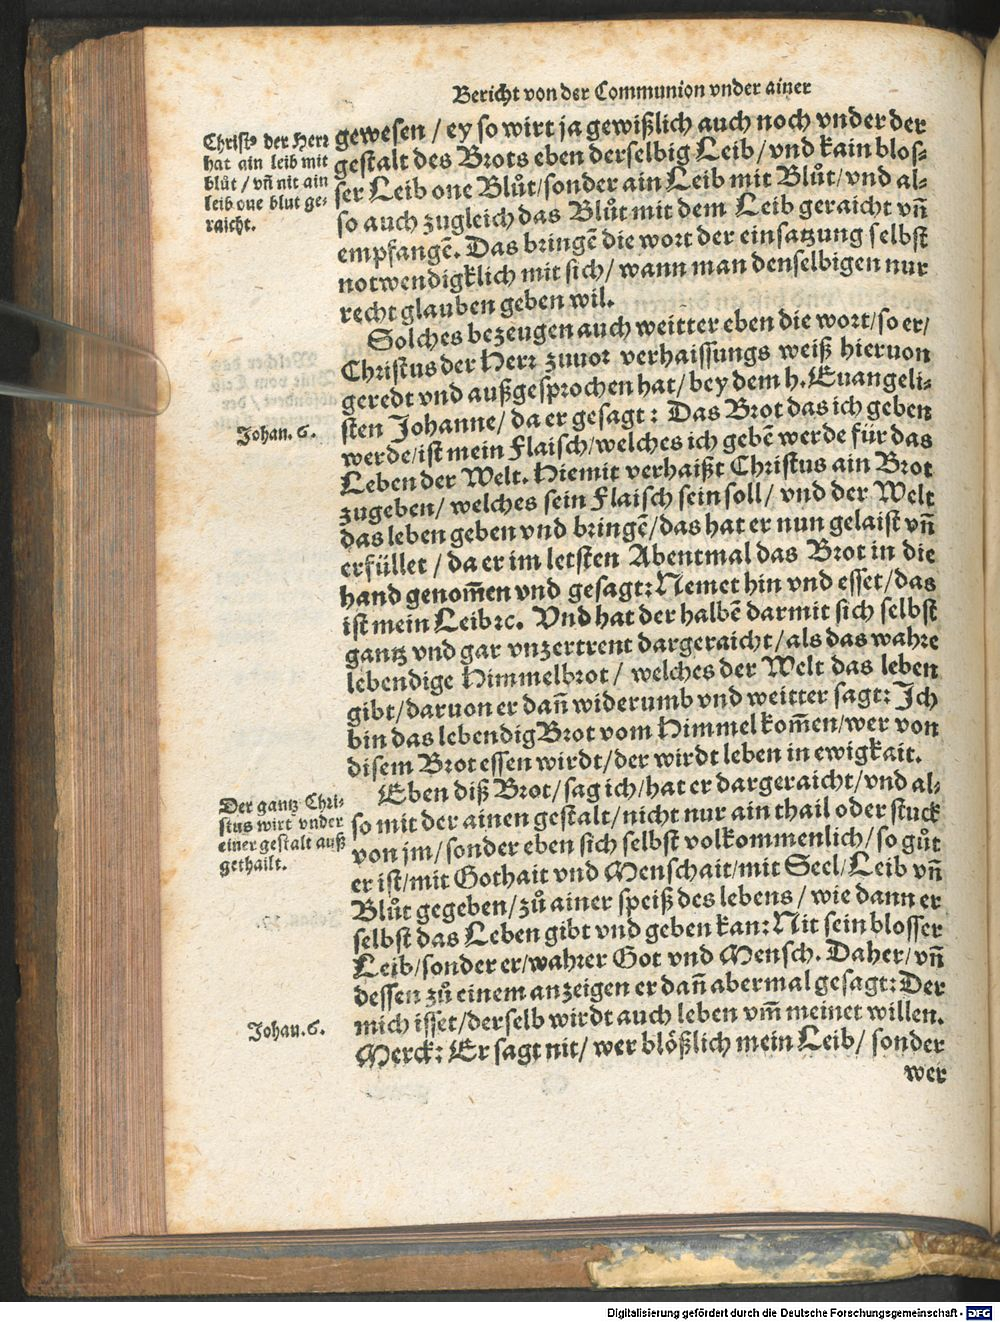 Bericht von der Communion vnder ainer
Christꝰ der Herr
hat ain leib mit
blůt / vñ nit ain
leib one blut ge-
raicht.
gewesen / ey so wirt ja gewißlich auch noch vnder der
gestalt des Brots eben derselbig Leib / vnd kain blos-
ser Leib one Blůt / sonder ain Leib mit Blůt / vnd al-
so auch zugleich das Blůt mit dem Leib geraicht vñ
empfangẽ. Das bringẽ die wort der einsatzung selbst
notwendigklich mit sich / wann man denselbigen nur
recht glauben geben wil.
Solches bezeugen auch weitter eben die wort / so er /
Christus der Herr zuuor verhaissungs weiß hieruon
geredt vnd außgesprochen hat / bey dem h. Euangeli-
sten Johanne / da er gesagt: Das Brot das ich geben
Johan. 6.
werde / ist mein Flaisch / welches ich gebẽ werde für das
Leben der Welt. Hiemit verhaißt Christus ain Brot
zugeben / welches sein Flaisch sein soll / vnd der Welt
das leben geben vnd bringẽ / das hat er nun gelaist vñ
erfüllet / da er im letsten Abentmal das Brot in die
hand genom̃en vnd gesagt: Nemet hin vnd esset / das
ist mein Leib ꝛc. Vnd hat der halbẽ darmit sich selbst
gantz vnd gar vnzertrent dargeraicht / als das wahre
lebendige Himmelbrot / welches der Welt das leben
gibt / daruon er dañ widerumb vnd weitter sagt: Ich
bin das lebendig Brot vom Himmel kom̃en / wer von
disem Brot essen wirdt / der wirdt leben in ewigkait.
Der gantz Chri-
stus wirt vnder
einer gestalt auß
gethailt.
Eben diß Brot / sag ich / hat er dargeraicht / vnd al-
so mit der ainen gestalt / nicht nur ain thail oder stuck
von jm / sonder eben sich selbst volkommenlich / so gůt
er ist / mit Gothait vnd Menschait / mit Seel / Leib vñ
Blůt gegeben / zů ainer speiß des lebens / wie dann er
selbst das Leben gibt vnd geben kan: Nit sein blosser
Leib / sonder er / wahrer Got vnd Mensch. Daher / vñ
dessen zů einem anzeigen er dañ abermal gesagt: Der
Johan. 6.
mich isset / derselb wirdt auch leben vm̃ meinet willen.
Merck: Er sagt nit / wer blößlich mein Leib / sonder
wer
Digitalisierung gefördert durch die Deutsche Forschungsgemeinschaft - DFG